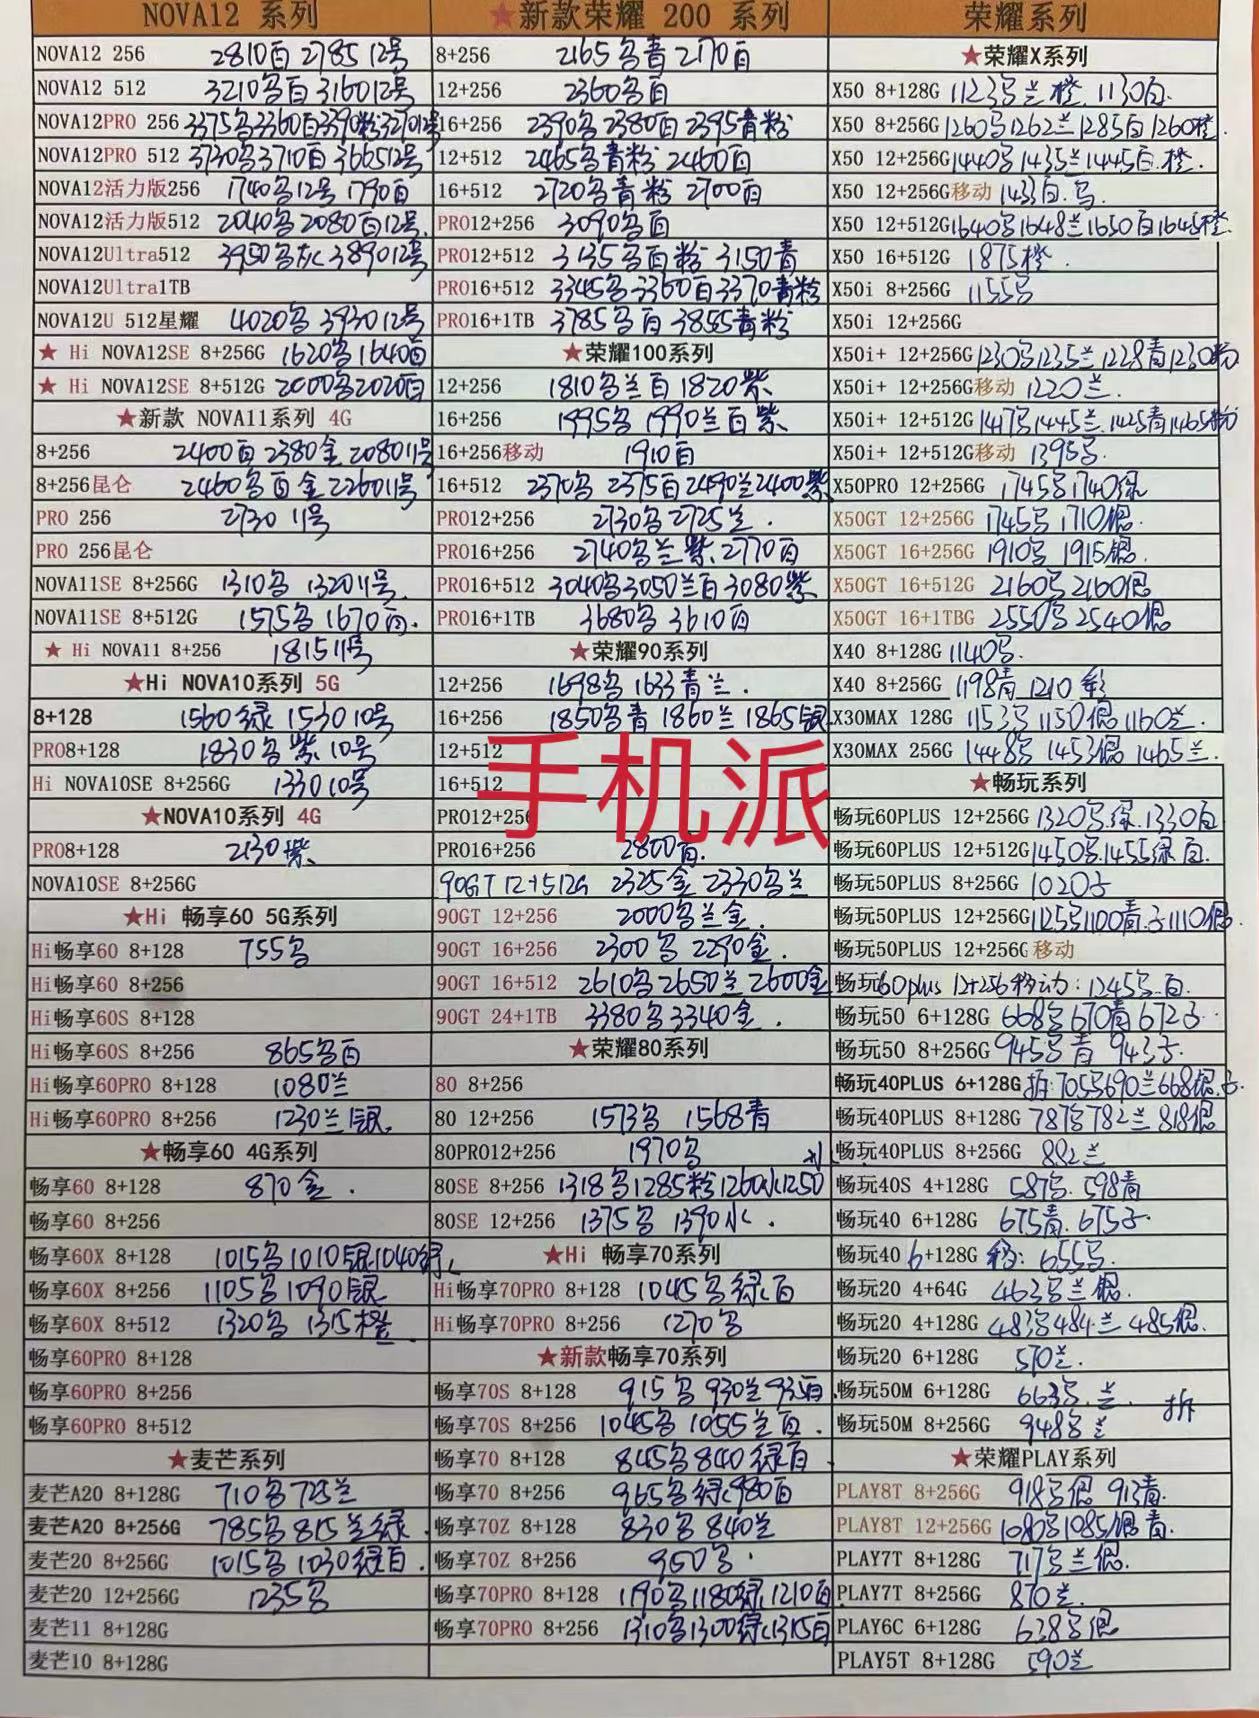 NOVA12 系列
NOVA12 256 2810白 2785 12号
NOVA12 512 3210乌白 3160 12号
NOVA12PRO 256 3375乌3360白3390粉3270 12号
NOVA12PRO 512 3730乌3710白 3665 12号
NOVA12活力版256 1740乌12号 1790白
NOVA12活力版512 2040乌2080白12号
NOVA12Ultra512 3950乌灰 3890 12号
NOVA12Ultra1TB
NOVA12U 512星耀 4020乌 3930 12号
★ Hi NOVA12SE 8+256G 1620乌1640白
★ Hi NOVA12SE 8+512G 2000乌2020白
★新款 NOVA11系列 4G
8+256 2400白 2380金 2080 11号
8+256昆仑 2460乌白金 2260 11号
PRO 256 2730 11号
PRO 256昆仑
NOVA11SE 8+256G 1310乌 1320 11号
NOVA11SE 8+512G 1575乌 1670白.
★ Hi NOVA11 8+256 1815 11号
★Hi NOVA10系列 5G
8+128 1560绿 1530 10号
PRO8+128 1830乌紫 10号
Hi NOVA10SE 8+256G 1330 10号
★NOVA10系列 4G
PRO8+128 2130紫
NOVA10SE 8+256G
★Hi 畅享60 5G系列
Hi畅享60 8+128 755乌
Hi畅享60 8+256
Hi畅享60S 8+128
Hi畅享60S 8+256 865乌白
Hi畅享60PRO 8+128 1080兰
Hi畅享60PRO 8+256 1230兰银
★畅享60 4G系列
畅享60 8+128 870金.
畅享60 8+256
畅享60X 8+128 1015乌1010银1040绿
畅享60X 8+256 1105乌1090银
畅享60X 8+512 1320乌 1315橙
畅享60PRO 8+128
畅享60PRO 8+256
畅享60PRO 8+512
★麦芒系列
麦芒A20 8+128G 710乌725兰
麦芒A20 8+256G 785乌 815兰绿.
麦芒20 8+256G 1015乌 1030绿白.
麦芒20 12+256G 1235乌
麦芒11 8+128G
麦芒10 8+128G
★新款荣耀 200 系列
8+256 2165乌青 2170白
12+256 2360乌白
16+256 2390乌 2380白 2395青粉
12+512 2465乌青粉 2460白
16+512 2720乌青粉 2700白
PRO12+256 3090乌白
PRO12+512 3135乌白粉 3150青
PRO16+512 3345乌3360白3370青粉
PRO16+1TB 3785乌白 3855青粉
★荣耀100系列
12+256 1810乌兰白 1820紫
16+256 1995乌 1990兰白紫
16+256移动 1910白
16+512 2370乌 2375白2490兰2400紫
PRO12+256 2730乌2725兰.
PRO16+256 2740乌兰紫 2770白
PRO16+512 3040乌3050兰白3080紫
PRO16+1TB 3680乌 3610白
★荣耀90系列
12+256 1698乌 1633青兰.
16+256 1850乌青 1860兰 1865银
12+512
16+512
手机派
PRO12+256
PRO16+256 2800白.
90GT 12+512G 2325金 2330乌兰
90GT 12+256 2000乌兰金.
90GT 16+256 2300乌 2290金.
90GT 16+512 2610乌2650兰2600金
90GT 24+1TB 3380乌3340金.
★荣耀80系列
80 8+256
80 12+256 1573乌 1568青
80PRO12+256 1970乌
80SE 8+256 1318乌1285粉1260水1250
80SE 12+256 1375乌 1390水.
★Hi 畅享70系列
Hi畅享70PRO 8+128 1045乌绿白
Hi畅享70PRO 8+256 1270乌
★新款畅享70系列
畅享70S 8+128 915乌 930兰935白
畅享70S 8+256 1045乌1055兰白.
畅享70 8+128 845乌840绿白
畅享70 8+256 965乌绿980白
畅享70Z 8+128 830乌 840兰
畅享70Z 8+256 950乌
畅享70PRO 8+128 1190乌1180绿1210白
畅享70PRO 8+256 1310乌1300绿1315白
荣耀系列
★荣耀X系列
X50 8+128G 1123乌兰橙 1130白.
X50 8+256G 1260乌1262兰1285白1260橙.
X50 12+256G 1440乌1435兰1445白.橙.
X50 12+256G移动 1433白.乌
X50 12+512G 1640乌1648兰1650白1645橙.
X50 16+512G 1875橙.
X50i 8+256G 1155乌
X50i 12+256G
X50i+ 12+256G 1230乌1235兰1228青1230粉
X50i+ 12+256G移动 1220兰.
X50i+ 12+512G 1417乌1445兰.1425青1465粉
X50i+ 12+512G移动 1395乌.
X50PRO 12+256G 1745乌1740绿
X50GT 12+256G 1745乌 1710银.
X50GT 16+256G 1910乌 1915银.
X50GT 16+512G 2160乌2160银
X50GT 16+1TBG 2550乌 2540银
X40 8+128G 1140乌.
X40 8+256G 1198青 1210彩
X30MAX 128G 1153乌1150银1160兰.
X30MAX 256G 1448乌 1453银 1465兰.
★畅玩系列
畅玩60PLUS 12+256G 1320乌.绿.1330白
畅玩60PLUS 12+512G 1450乌.1455绿白.
畅玩50PLUS 8+256G 1020子
畅玩50PLUS 12+256G 1125乌1100青.子1110银.
畅玩50PLUS 12+256G移动
畅玩60plus 12+256移动: 1245乌.白.
畅玩50 6+128G 668乌670青672子.
畅玩50 8+256G 945乌青 943子.
畅玩40PLUS 6+128G 拆:705乌690兰668银.子
畅玩40PLUS 8+128G 787乌782兰 818银
畅玩40PLUS 8+256G 882兰
畅玩40S 4+128G 587乌.598青
畅玩40 6+128G 675青.675子.
畅玩40 6+128G 移: 655乌.
畅玩20 4+64G 463乌兰银.
畅玩20 4+128G 483乌484兰 485银.
畅玩20 6+128G 570兰.
畅玩50M 6+128G 663乌.兰. 拆
畅玩50M 8+256G 948乌兰
★荣耀PLAY系列
PLAY8T 8+256G 918乌银 913青.
PLAY8T 12+256G 1080乌1085银青.
PLAY7T 8+128G 717乌兰银.
PLAY7T 8+256G 870兰.
PLAY6C 6+128G 638乌银
PLAY5T 8+128G 590兰